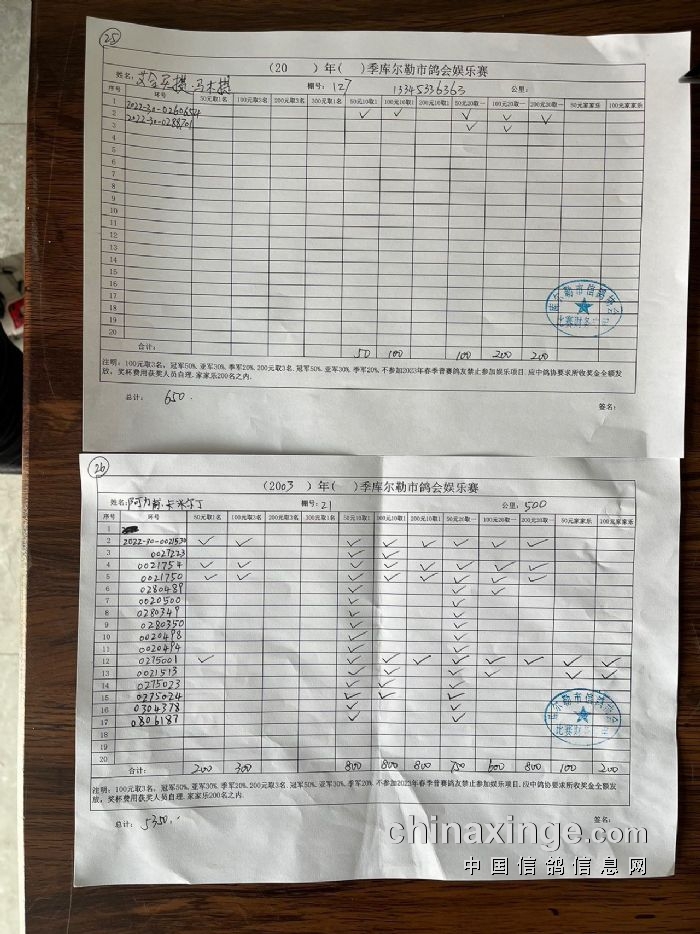 25
(20 )年( )季库尔勒市鸽会娱乐赛
姓名: 棚号: 127 13345336363 公里:
序号 环号 50元取1名 100元取3名 200元取3名 300元取1名 50元10取1 100元10取1 200元10取1 50元20取一 100元20取一 200元20取一 50元家家乐 100元家家乐
1 2022-30-0260654 ✓ ✓ ✓ ✓ ✓
2 2022-30-0288701 ✓ ✓
3
4
5
6
7
8
9
10
11
12
13
14
15
16
17
18
19
20
合计: 50 100 100 200 200
注明: 100元取3名, 冠军50%, 亚军30%, 季军20%, 200元取3名, 冠军50%, 亚军30%, 季军20%, 不参加2023年春季普赛鸽友禁止参加娱乐项目, 应中鸽协要求所收奖金全额发
放, 奖杯费用获奖人员自理, 家家乐200名之内.
总计: 650.
签名:
库尔勒市信鸽协会
比赛财务
26
(2003 )年( )季库尔勒市鸽会娱乐赛
姓名: 阿力甫.卡米尔丁 棚号: 21 公里: 500
序号 环号 50元取1名 100元取3名 200元取3名 300元取1名 50元10取1 100元10取1 200元10取1 50元20取一 100元20取一 200元20取一 50元家家乐 100元家家乐
1
2 2022-30-0021530 ✓ ✓ ✓ ✓ ✓ ✓ ✓ ✓
3 0027223 ✓ ✓
4 0021754 ✓ ✓ ✓ ✓ ✓ ✓ ✓ ✓
5 0021750 ✓ ✓ ✓ ✓ ✓ ✓ ✓ ✓
6 0280489 ✓ ✓ ✓
7 0020500 ✓ ✓
8 0280349 ✓ ✓
9 0280350 ✓ ✓
10 0020498 ✓ ✓
11 0020494 ✓ ✓
12 0275001 ✓ ✓ ✓ ✓ ✓ ✓ ✓ ✓ ✓
13 0021513 ✓ ✓ ✓ ✓ ✓ ✓
14 0275023 ✓ ✓ ✓
15 0275024 ✓ ✓ ✓
16 0304378 ✓ ✓
17 0806187 ✓ ✓
18
19
20
合计: 200 300 800 800 800 750 600 800 100 200
注明: 100元取3名, 冠军50%, 亚军30%, 季军20%, 200元取3名, 冠军50%, 亚军30%, 季军20%, 不参加2023年春季普赛鸽友禁止参加娱乐项目, 应中鸽协要求所收奖金全额发
放, 奖杯费用获奖人员自理, 家家乐200名之内.
总计: 5350..
签名:
库尔勒市信鸽协会
比赛财务
chinaxinge.com
中国信鸽信息网